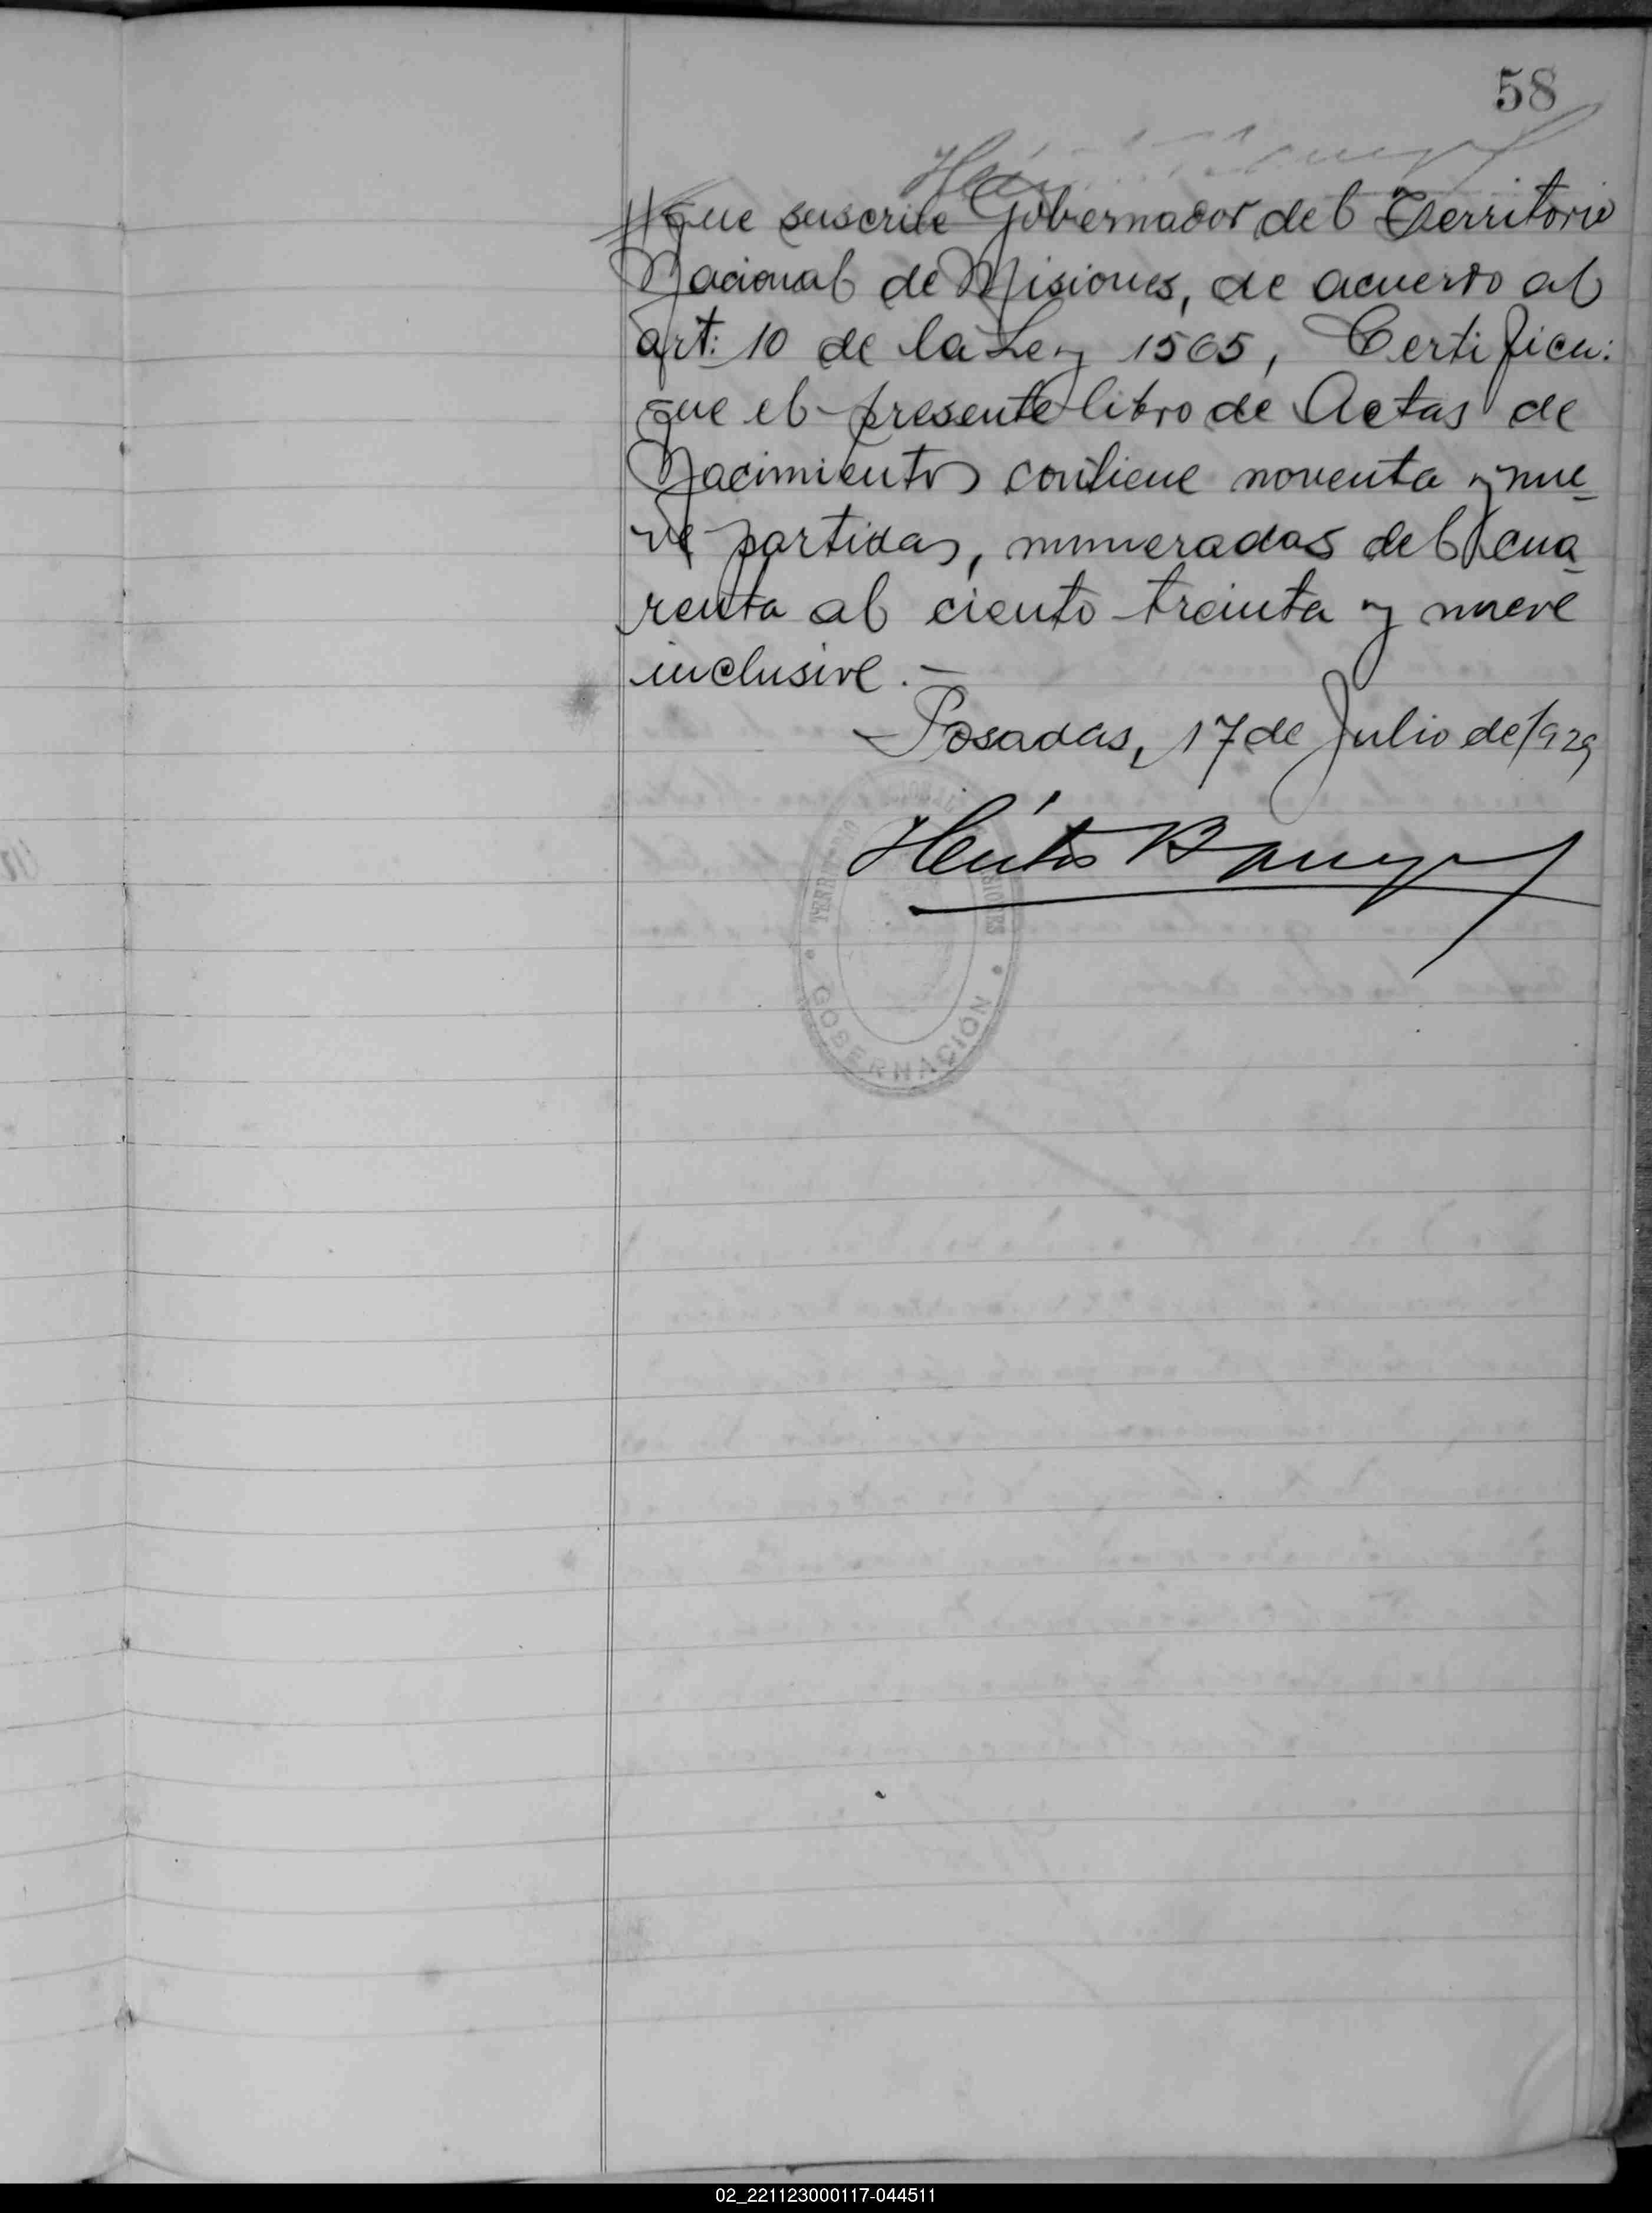 58
que suscribe Gobernador del Territorio
Nacional de Misiones, de acuerdo al
art: 10 de la Ley 1565, Certifica:
que el presente libro de Actas de
Nacimientos contiene noventa y nue-
ve partidas, numeradas del cua-
renta al ciento treinta y nueve
inclusive.-
Posadas, 17 de Julio de 1929
Héctor Barreyro
TERRITORIO MISIONES
GOBERNACIÓN
02_221123000117-044511